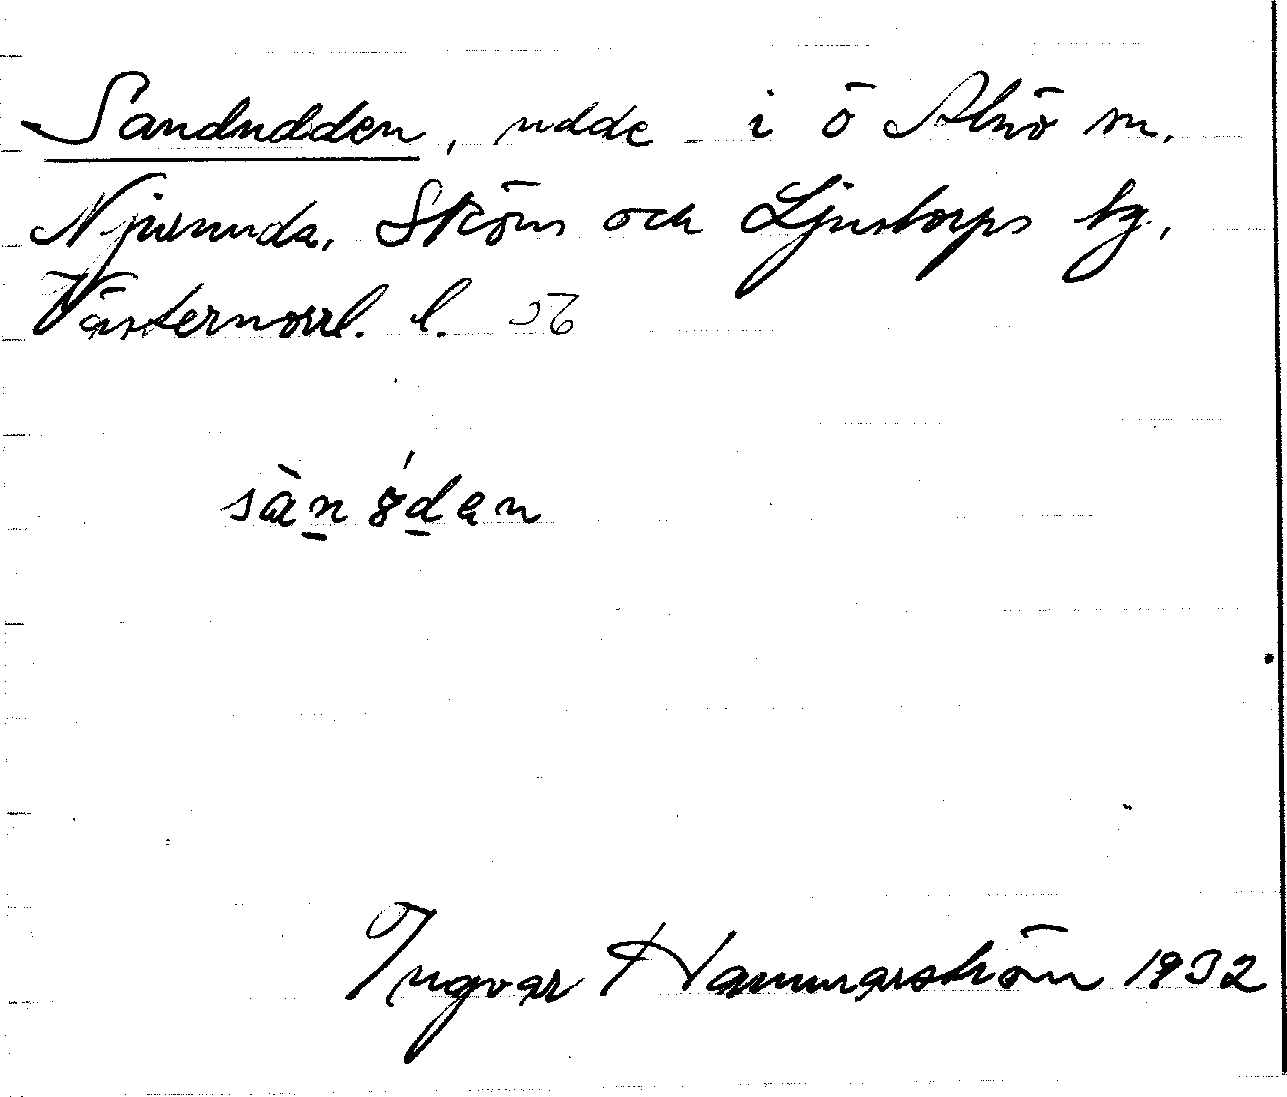 Sandudden, udde i ö Alnö sn.
Njurunda, Sköns och Ljustorps tg.,
Västernorrl. l. 56
sàn ꞏ8́dan
Ingvar Hammarström 1932